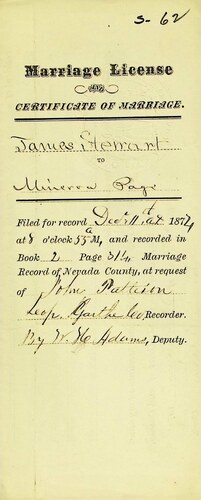 S-62
Marriage License
AND
CERTIFICATE OF MARRIAGE.
James Stewart
TO
Minerva Page
Filed for record Dec 11th at 1874
at 8 o'clock 55 A M, and recorded in
Book 2 Page 314, Marriage
Record of Nevada County, at request
of John Pattison
Leop. Garthe Co, Recorder.
By W. H Adams, Deputy.